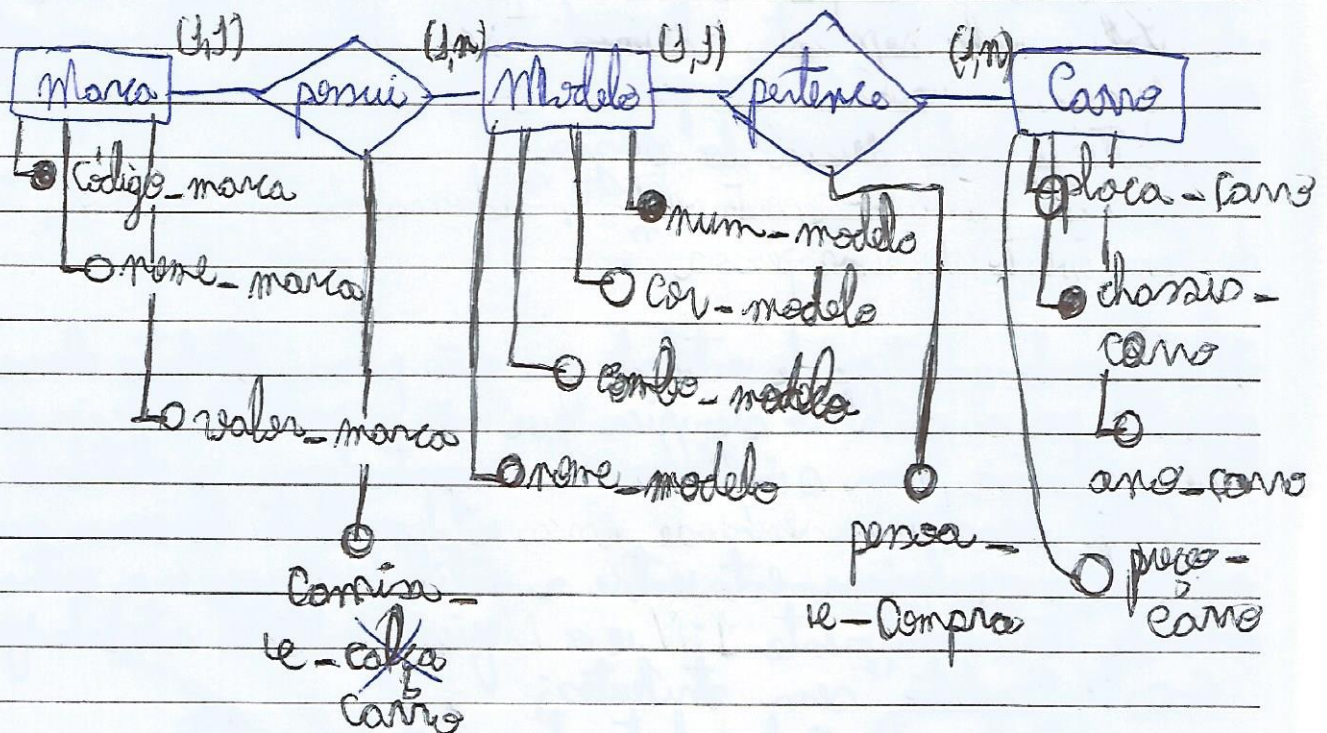 (1,1) (1,n) (1,1) (1,n)
Marca possui Modelo pertence Carro
código_marca
nome_marca
valor_marca
Camisa_
e_calça
carro
num_modelo
cor_modelo
combo_modelo
nome_modelo
pessoa_
e_Compra
placa_carro
chassio_
carro
ano_carro
preço_
carro